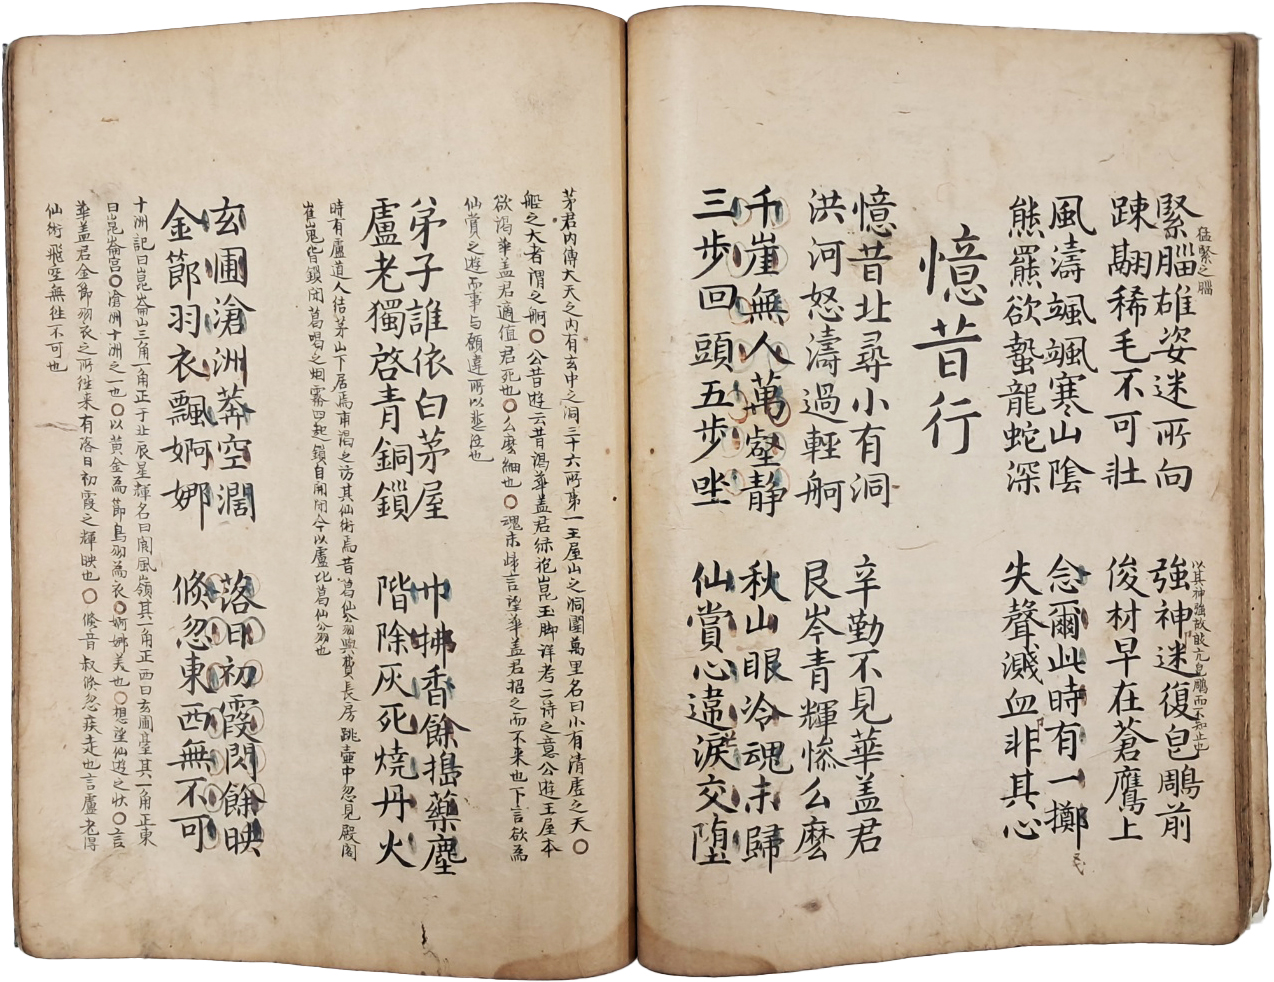 猛緊之腦
緊腦雄姿迷所向
踈翮稀毛不可壯
以其神強故敢亢皂鵰而不知止也
強神迷復皂鵰前
俊材早在蒼鷹上
風濤颯颯寒山陰
熊羆欲蟄龍蛇深
念爾此時有一擲
失聲濺血非其心
憶昔行
憶昔北尋小有洞
洪河怒濤過輕舸
辛勤不見華盖君
艮岑青輝慘么麼
千崖無人萬壑静
三步回頭五步坐
秋山眼冷魂未歸
仙賞心違淚交墮
茅君內傳大天之內有玄中之洞三十六所第一王屋山之洞圍萬里名曰小有清虛之天○
船之大者謂之舸○公昔遊云昔謁華盖君綠袍崑玉脚详考二诗之意公遊王屋本
欲謁華盖君適值君死也○么麼細也○魂未歸言望華盖君招之而不来也下言欲為
仙賞之遊而事与願違所以悲泣也
弟子誰依白茅屋
盧老獨啓青銅鎖
巾拂香餘搗藥塵
階除灰死燒丹火
時有盧道人结茅山下居焉甫渴之访其仙術焉昔葛仙公翁與費長房跳壷中忽見殿閣
崔嵬皆鎖闭葛唱之烟霧四起鎖自開闭今以盧比葛仙公翁也
玄圃滄洲莽空濶
金節羽衣飄婀娜
落日初霞閃餘映
倐忽東西無不可
十洲記曰崑崙山三角一角正于北辰星輝名曰閬風嶺其一角正西曰玄圃臺其一角正東
曰崑崙宮○滄洲十洲之一也○以黄金為節鳥羽為衣○婀娜美也○想望仙遊之狀○言
華盖君金節羽衣之所往来有落日初霞之輝映也○倐音叔倐忽疾走也言盧老得
仙術飛空無往不可也